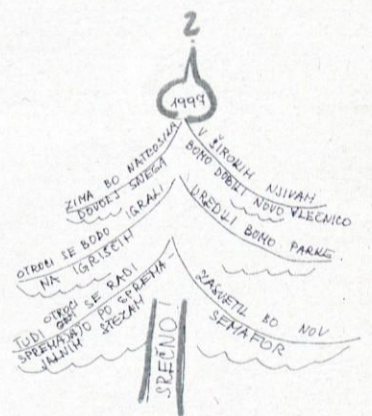 2
1997
ZIMA BO NATROSILA
DOVOLJ SNEGA
V ŠIROKIH NJIVAH
BOMO DOBILI NOVO VLEČNICO
OTROCI SE BODO IGRALI
NA IGRIŠČIH
UREDILI BOMO PARKE
TUDI OTROCI
SE RADI
SPREHAJAJO PO SPREHA-
JALNIH STEZAH
ZASVETIL BO NOV
SEMAFOR
SREČNO!